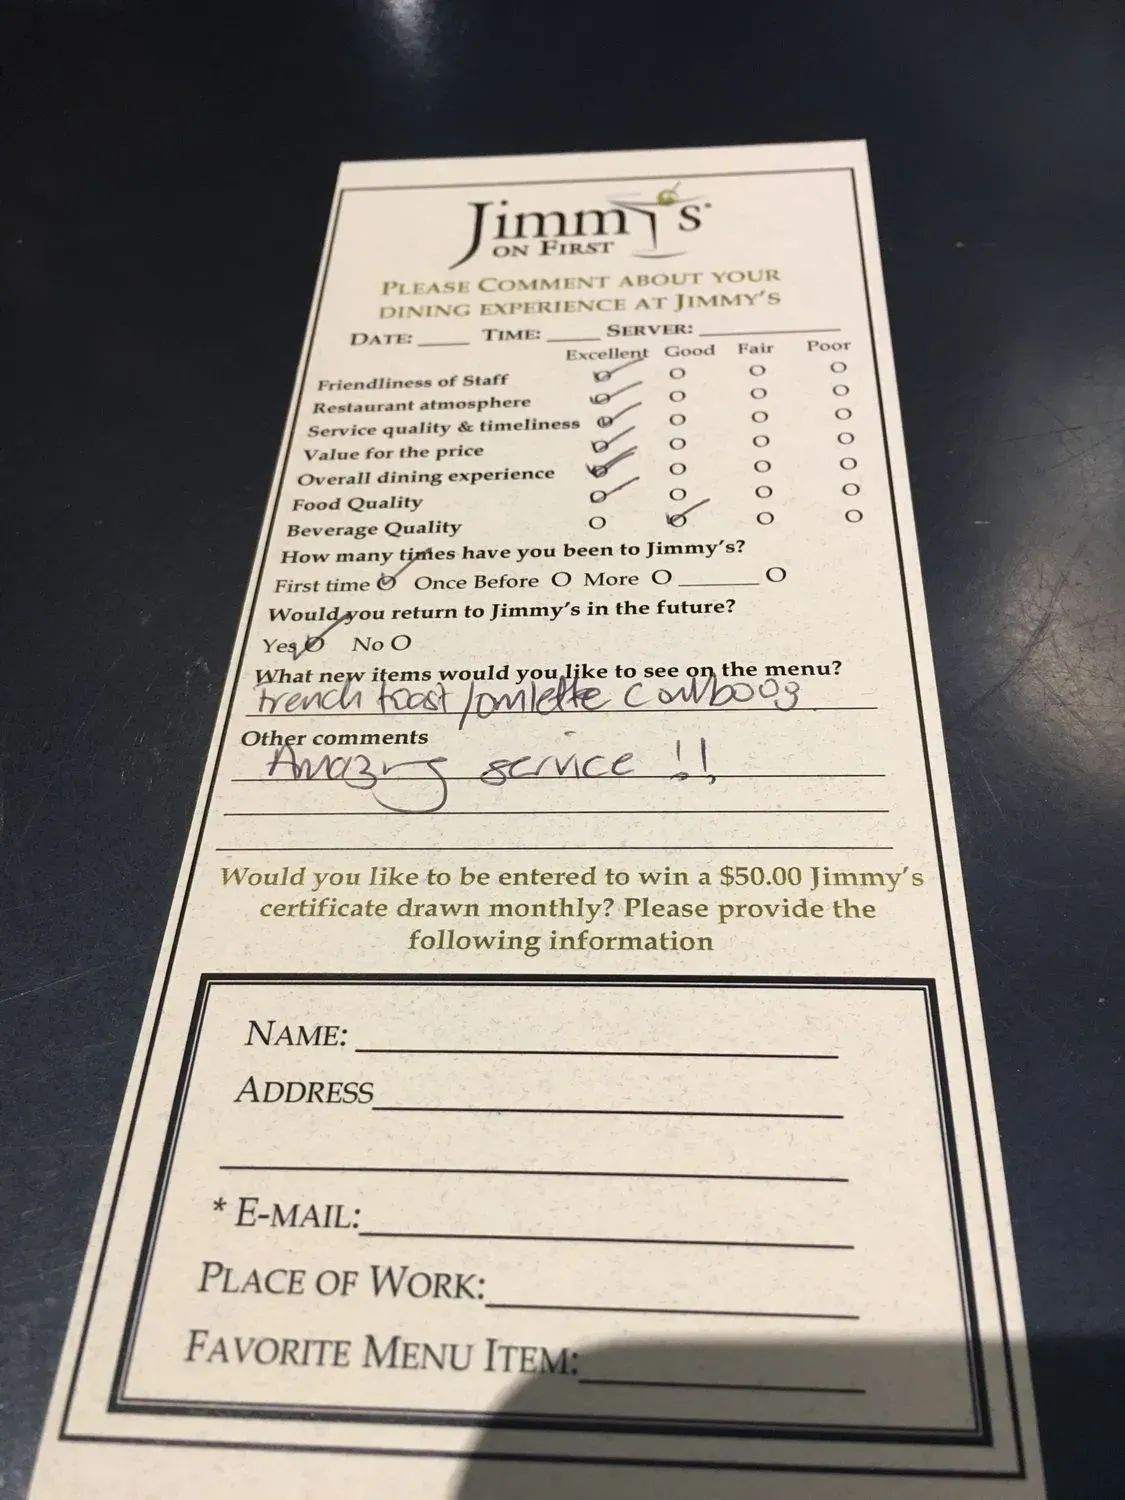 Jimmy's
ON FIRST
PLEASE COMMENT ABOUT YOUR
DINING EXPERIENCE AT JIMMY'S
DATE: ____ TIME: ____ SERVER: ________
Excellent Good Fair Poor
Friendliness of Staff
Restaurant atmosphere
Service quality & timeliness
Value for the price
Overall dining experience
Food Quality
Beverage Quality
How many times have you been to Jimmy's?
First time O Once Before O More O ______ O
Would you return to Jimmy's in the future?
Yes O No O
What new items would you like to see on the menu?
french toast/omlette
Other comments
Amazing service !!
Would you like to be entered to win a $50.00 Jimmy's
certificate drawn monthly? Please provide the
following information
NAME:
ADDRESS
* E-MAIL:
PLACE OF WORK:
FAVORITE MENU ITEM: